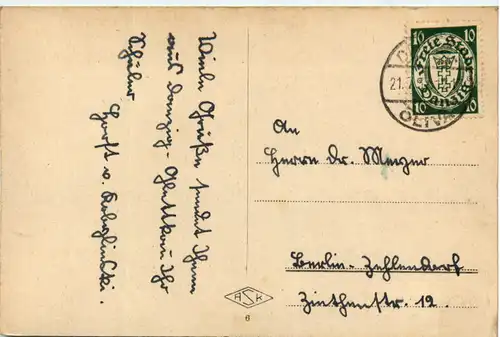 Viele Grüße sendet Ihnen
aus Danzig-Glettkau Ihr
Schüler
Horst v. Kobylinski.
10 10
Freie Stadt
Danzig
10 10
21.
OLIVA
An
Herrn Dr. Metzer
Berlin-Zehlendorf
Ziethenstr. 12.
ASK
6